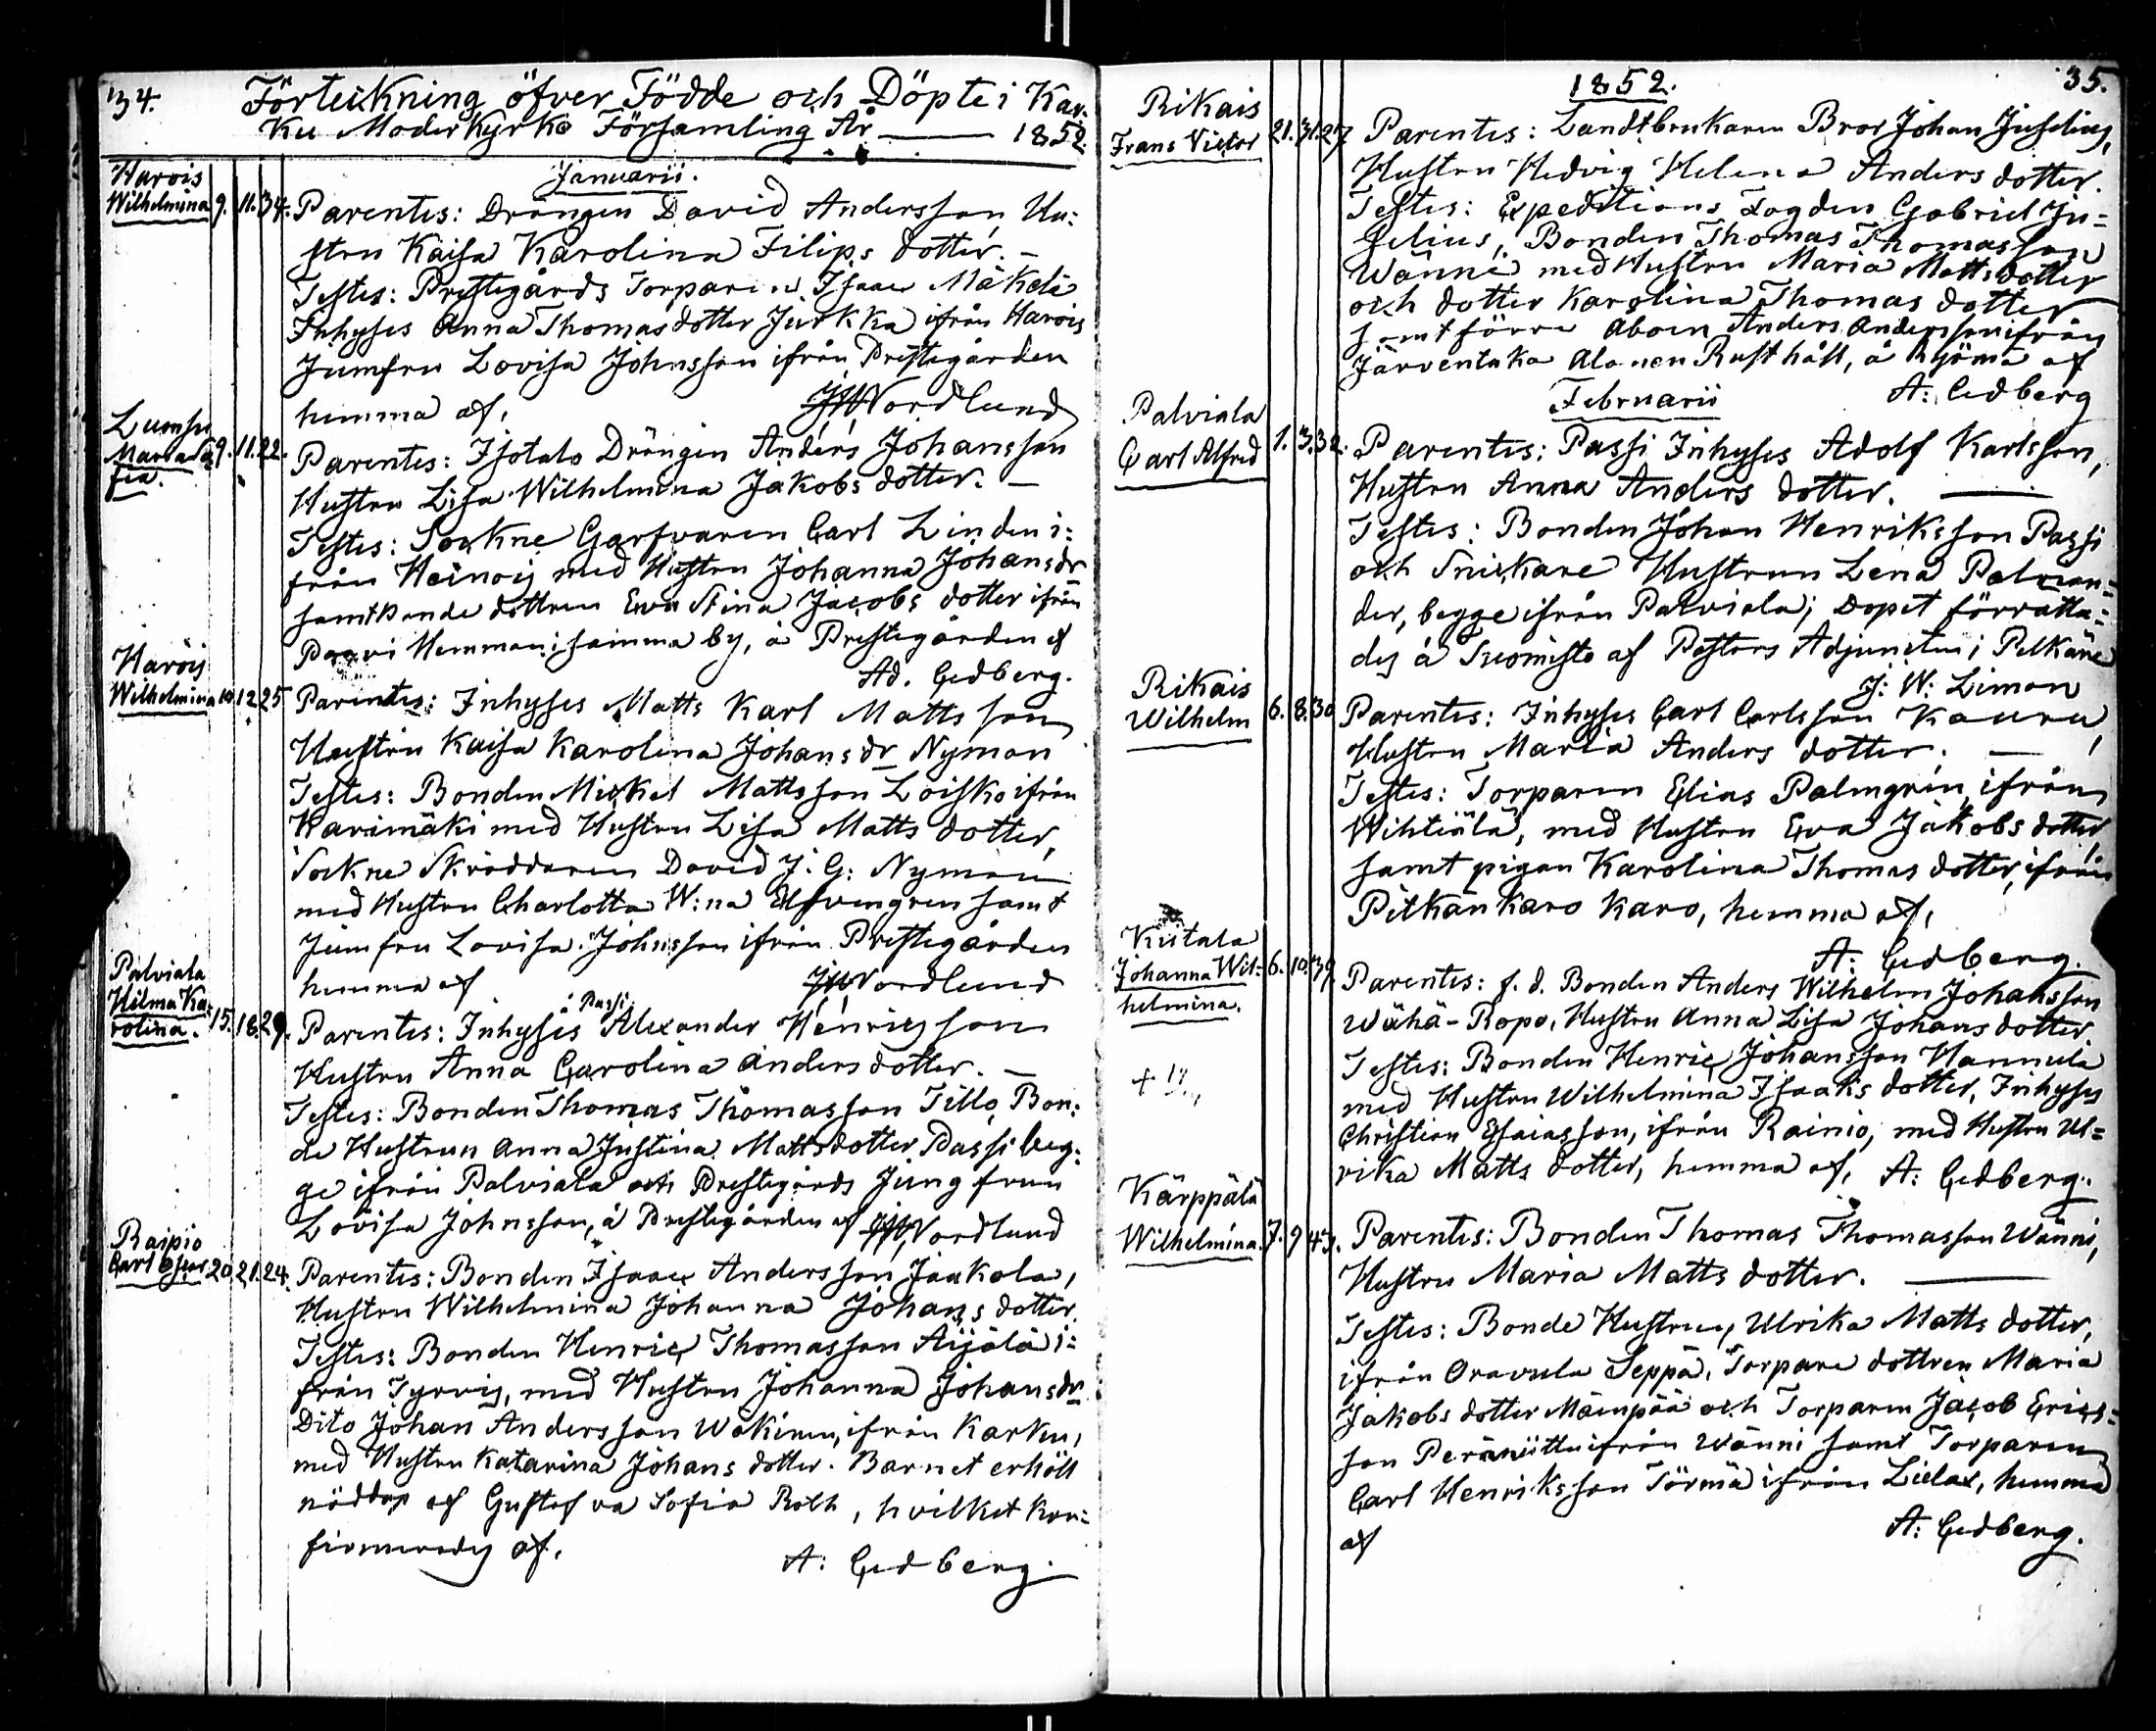 34. Förteckning öfver Födde och Döpte i Kar-
ku Moderkyrko Församling År —— 1852.
Januarii.
Harois
Wilhelmina 9. 11. 34. Parentes: Drängen David Andersson, Hu-
stru Kaisa Karolina Filips dotter. —
Testes: Prestegårds Torparen Isaac Mäkelä
Inhyses Anna Thomasdotter Jurkka ifrån Harois
Jumfru Lovisa Johnsson ifrån Prestegården
hemma af, JWNordlund
Lumsu
Maria So-
fia. 9. 11. 22. Parentes: Isotalo Drängen Anders Johansson
Hustru Lisa Wilhelmina Jakobs dotter. —
Testes: Sockne Garfvaren Carl Linden i-
från Heinois med Hustru Johanna Johansdr
samt Bonde dottren Ewa Stina Jacobs dotter ifrån
Paavi Hemman i samma by, å Prestegården af
Ad. Cedberg.
Harois
Wilhelmina 10 12 25 Parentes: Inhyses Matts Karl Mattsson
Hustru Kaisa Karolina Johansdr Nyman
Testes: Bonden Mickel Mattsson Loisko ifrån
Karimäki med Hustru Lisa Matts dotter,
Sockne Skräddaren David J. G: Nyman
med Hustru Charlotta W:na Elfvengren samt
Jumfru Lovisa Johnsson ifrån Prestegården
hemma af JWNordlund
Palviala
Hilma Ka-
rolina. 15. 18. 29. Parentes: Inhyses i Passi Alexander Henricsson
Hustru Anna Carolina Andersdotter. —
Testes: Bonden Thomas Thomasson Tillo, Bon-
de Hustrun Anna Justina Mattsdotter Passi beg-
ge ifrån Palviala och Prestegårds Jungfrun
Lovisa Johnsson, å Prestegården af JWNordlund
Raipio
Carl Oscar 20. 21. 24. Parentes: Bonden Isaac Andersson Jaakola,
Hustru Wilhelmina Johanna Johansdotter.
Testes: Bonden Henric Thomasson Äijälä i-
från Tyrvis, med Hustru Johanna Johansdr
Dito Johan Andersson Wäkinen, ifrån Karku,
med Hustru Katarina Johans dotter. Barnet erhöll
nöddop af Gustafva Sofia Roth, hvilket kon-
firmerades af, A: Cedberg.
1852. 35.
Rikais
Frans Victor 21. 31. 27. Parentes: Landtbrukaren Bror Johan Juselius,
Hustru Hedvig Helena Anders dotter.
Testes: Expeditions Fogden Gabriel Ju-
selius, Bonden Thomas Thomasson
Wänni med Hustru Maria Mattsdotter
och dotter Karolina Thomas dotter
samt förre Åboen Anders Andersson ifrån
Järventaka Alanen Rusthåll, å af
A: Cedberg
Februarii
Palviala
Carl Alfred 1. 3. 32. Parentes: Passi Inhyses Adolf Karlsson,
Hustru Anna Anders dotter. ——
Testes: Bonden Johan Henriksson Passi
och Snickare Hustrun Lena Palman-
der, begge ifrån Palviala; Dopet förrätta-
des å Suomisto af Pastors Adjuncten i Pelkäne
J: W: Limon
Rikais
Wilhelm 6. 8. 30. Parentes: Inhyses Carl Carlsson Kaura,
Hustru Maria Anders dotter. —
Testes: Torparen Elias Palmgrén, ifrån
Wihtiälä, med Hustru Ewa Jakobs dotter,
samt pigan Karolina Thomas dotter, ifrån
Pitkänkaro Karo, hemma af,
A: Cedberg.
Kutala
Johanna Wil-
helmina. 6. 10. 39. Parentes: f. d. Bonden Anders Wilhelm Johansson
Wähä-Ropo, Hustru Anna Lisa Johans dotter
Testes: Bonden Henric Johansson Hannula
med Hustru Wilhelmina Isaaks dotter, Inhyses
Christian Esaiasson, ifrån Rainio, med Hustru Ul-
rika Matts dotter, hemma af, A: Cedberg.
Kärppälä
Wilhelmina. 7. 9 43. Parentes: Bonden Thomas Thomasson Wänni,
Hustru Maria Matts dotter. ——
Testes: Bonde Hustrun, Ulrika Matts dotter,
ifrån Oravula Seppä, Torpare dottren Maria
Jakobs dotter Mäenpää och Torparen Jacob Erics-
son Peräniittu ifrån Wänni samt Torparen
Carl Henriksson Törmä ifrån Lielax, hemma
af A: Cedberg.